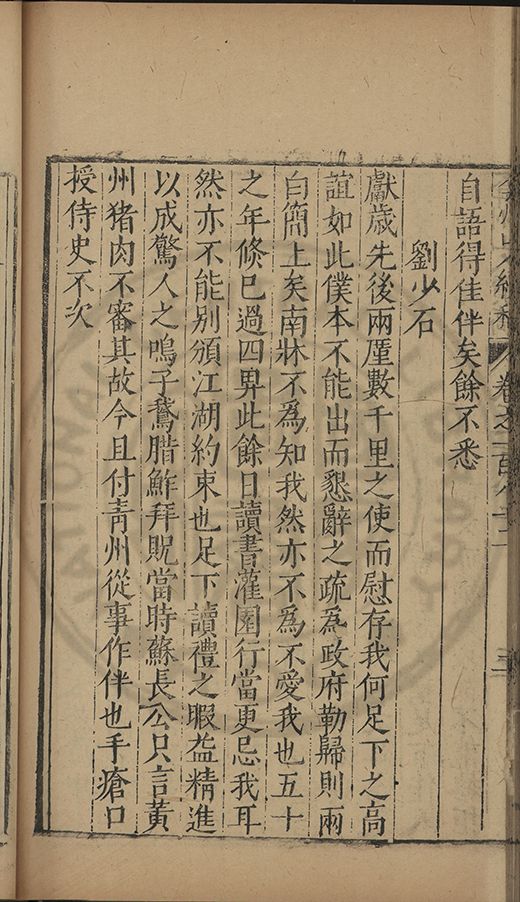 弇州山人續稿 卷之一百八十二
自語得佳伴矣餘不悉
劉少石
獻歲先後兩厪數千里之使而慰存我何足下之高
誼如此僕本不能出而懇辭之疏為政府勒歸則兩
白簡上矣南牀不為知我然亦不為不愛我也五十
之年倏已過四畀此餘日讀書灌園行當更忌我耳
然亦不能别頒江湖約束也足下讀禮之暇益精進
以成驚人之鳴子鵞腊鮓拜貺當時蘇長公只言黃
州猪肉不審其故今且付青州從事作伴也手瘡口
授侍史不次